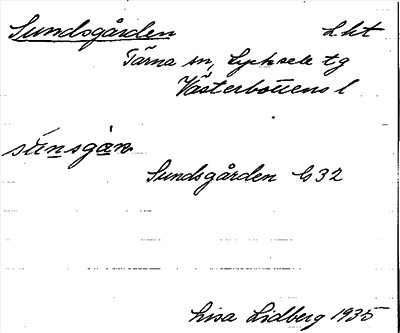 Sundsgården Lht
Tärna sn, Lycksele tg
Västerbottens l
súnsgàn
Sundsgården G32
Lisa Lidberg 1935